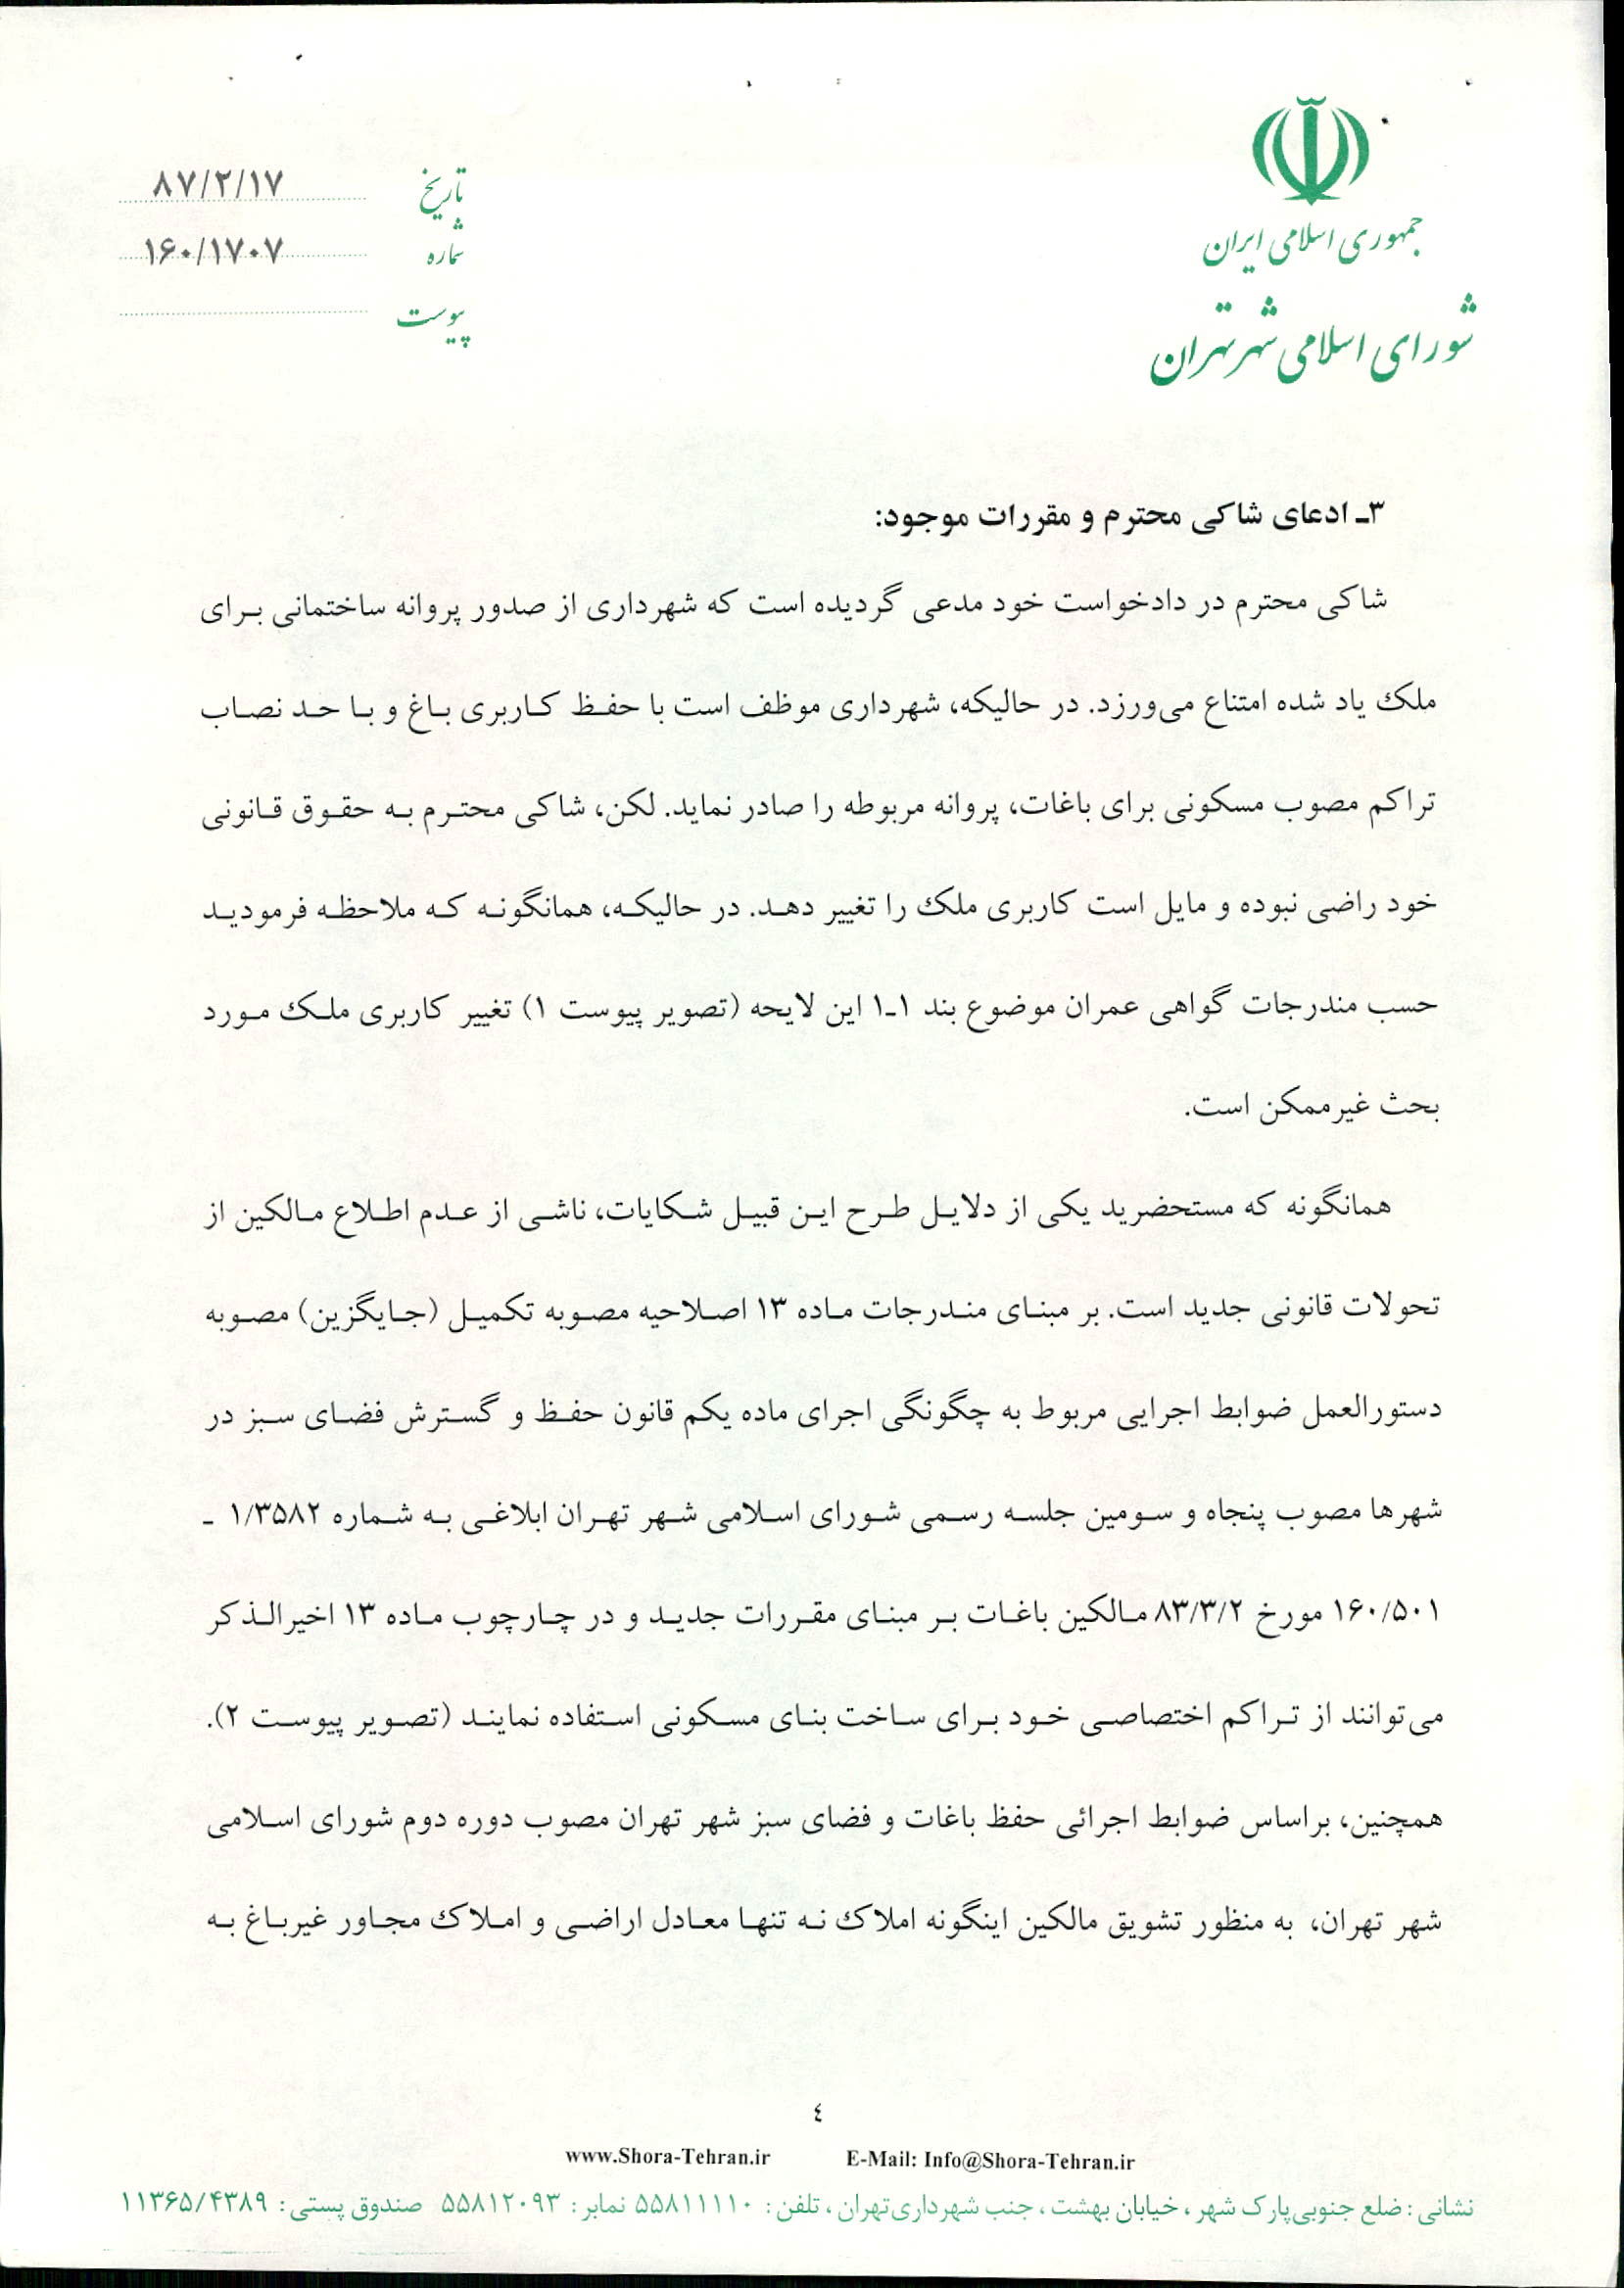 جمهوری اسلامی ایران
شورای اسلامی شهر تهران
تاریخ ۸۷/۲/۱۷
شماره ۱۶۰/۱۷۰۷
پیوست
۳ـ ادعای شاکی محترم و مقررات موجود:
شاکی محترم در دادخواست خود مدعی گردیده است که شهرداری از صدور پروانه ساختمانی برای
ملک یاد شده امتناع می‌ورزد. در حالیکه، شهرداری موظف است با حفظ کاربری باغ و با حد نصاب
تراکم مصوب مسکونی برای باغات، پروانه مربوطه را صادر نماید. لکن، شاکی محترم به حقوق قانونی
خود راضی نبوده و مایل است کاربری ملک را تغییر دهد. در حالیکه، همانگونه که ملاحظه فرمودید
حسب مندرجات گواهی عمران موضوع بند ۱ـ۱ این لایحه (تصویر پیوست ۱) تغییر کاربری ملک مورد
بحث غیرممکن است.
همانگونه که مستحضرید یکی از دلایل طرح این قبیل شکایات، ناشی از عدم اطلاع مالکین از
تحولات قانونی جدید است. بر مبنای مندرجات ماده ۱۳ اصلاحیه مصوبه تکمیل (جایگزین) مصوبه
دستورالعمل ضوابط اجرایی مربوط به چگونگی اجرای ماده یکم قانون حفظ و گسترش فضای سبز در
شهرها مصوب پنجاه و سومین جلسه رسمی شورای اسلامی شهر تهران ابلاغی به شماره ۱/۳۵۸۲ ـ
۱۶۰/۵۰۱ مورخ ۸۳/۳/۲ مالکین باغات بر مبنای مقررات جدید و در چارچوب ماده ۱۳ اخیرالذکر
می‌توانند از تراکم اختصاصی خود برای ساخت بنای مسکونی استفاده نمایند (تصویر پیوست ۲).
همچنین، براساس ضوابط اجرائی حفظ باغات و فضای سبز شهر تهران مصوب دوره دوم شورای اسلامی
شهر تهران، به منظور تشویق مالکین اینگونه املاک نه تنها معادل اراضی و املاک مجاور غیرباغ به
٤
www.Shora-Tehran.ir E-Mail: Info@Shora-Tehran.ir
نشانی: ضلع جنوبی پارک شهر، خیابان بهشت، جنب شهرداری تهران، تلفن: ۵۵۸۱۱۱۱۰ نمابر: ۵۵۸۱۲۰۹۳ صندوق پستی: ۱۱۳۶۵/۴۳۸۹